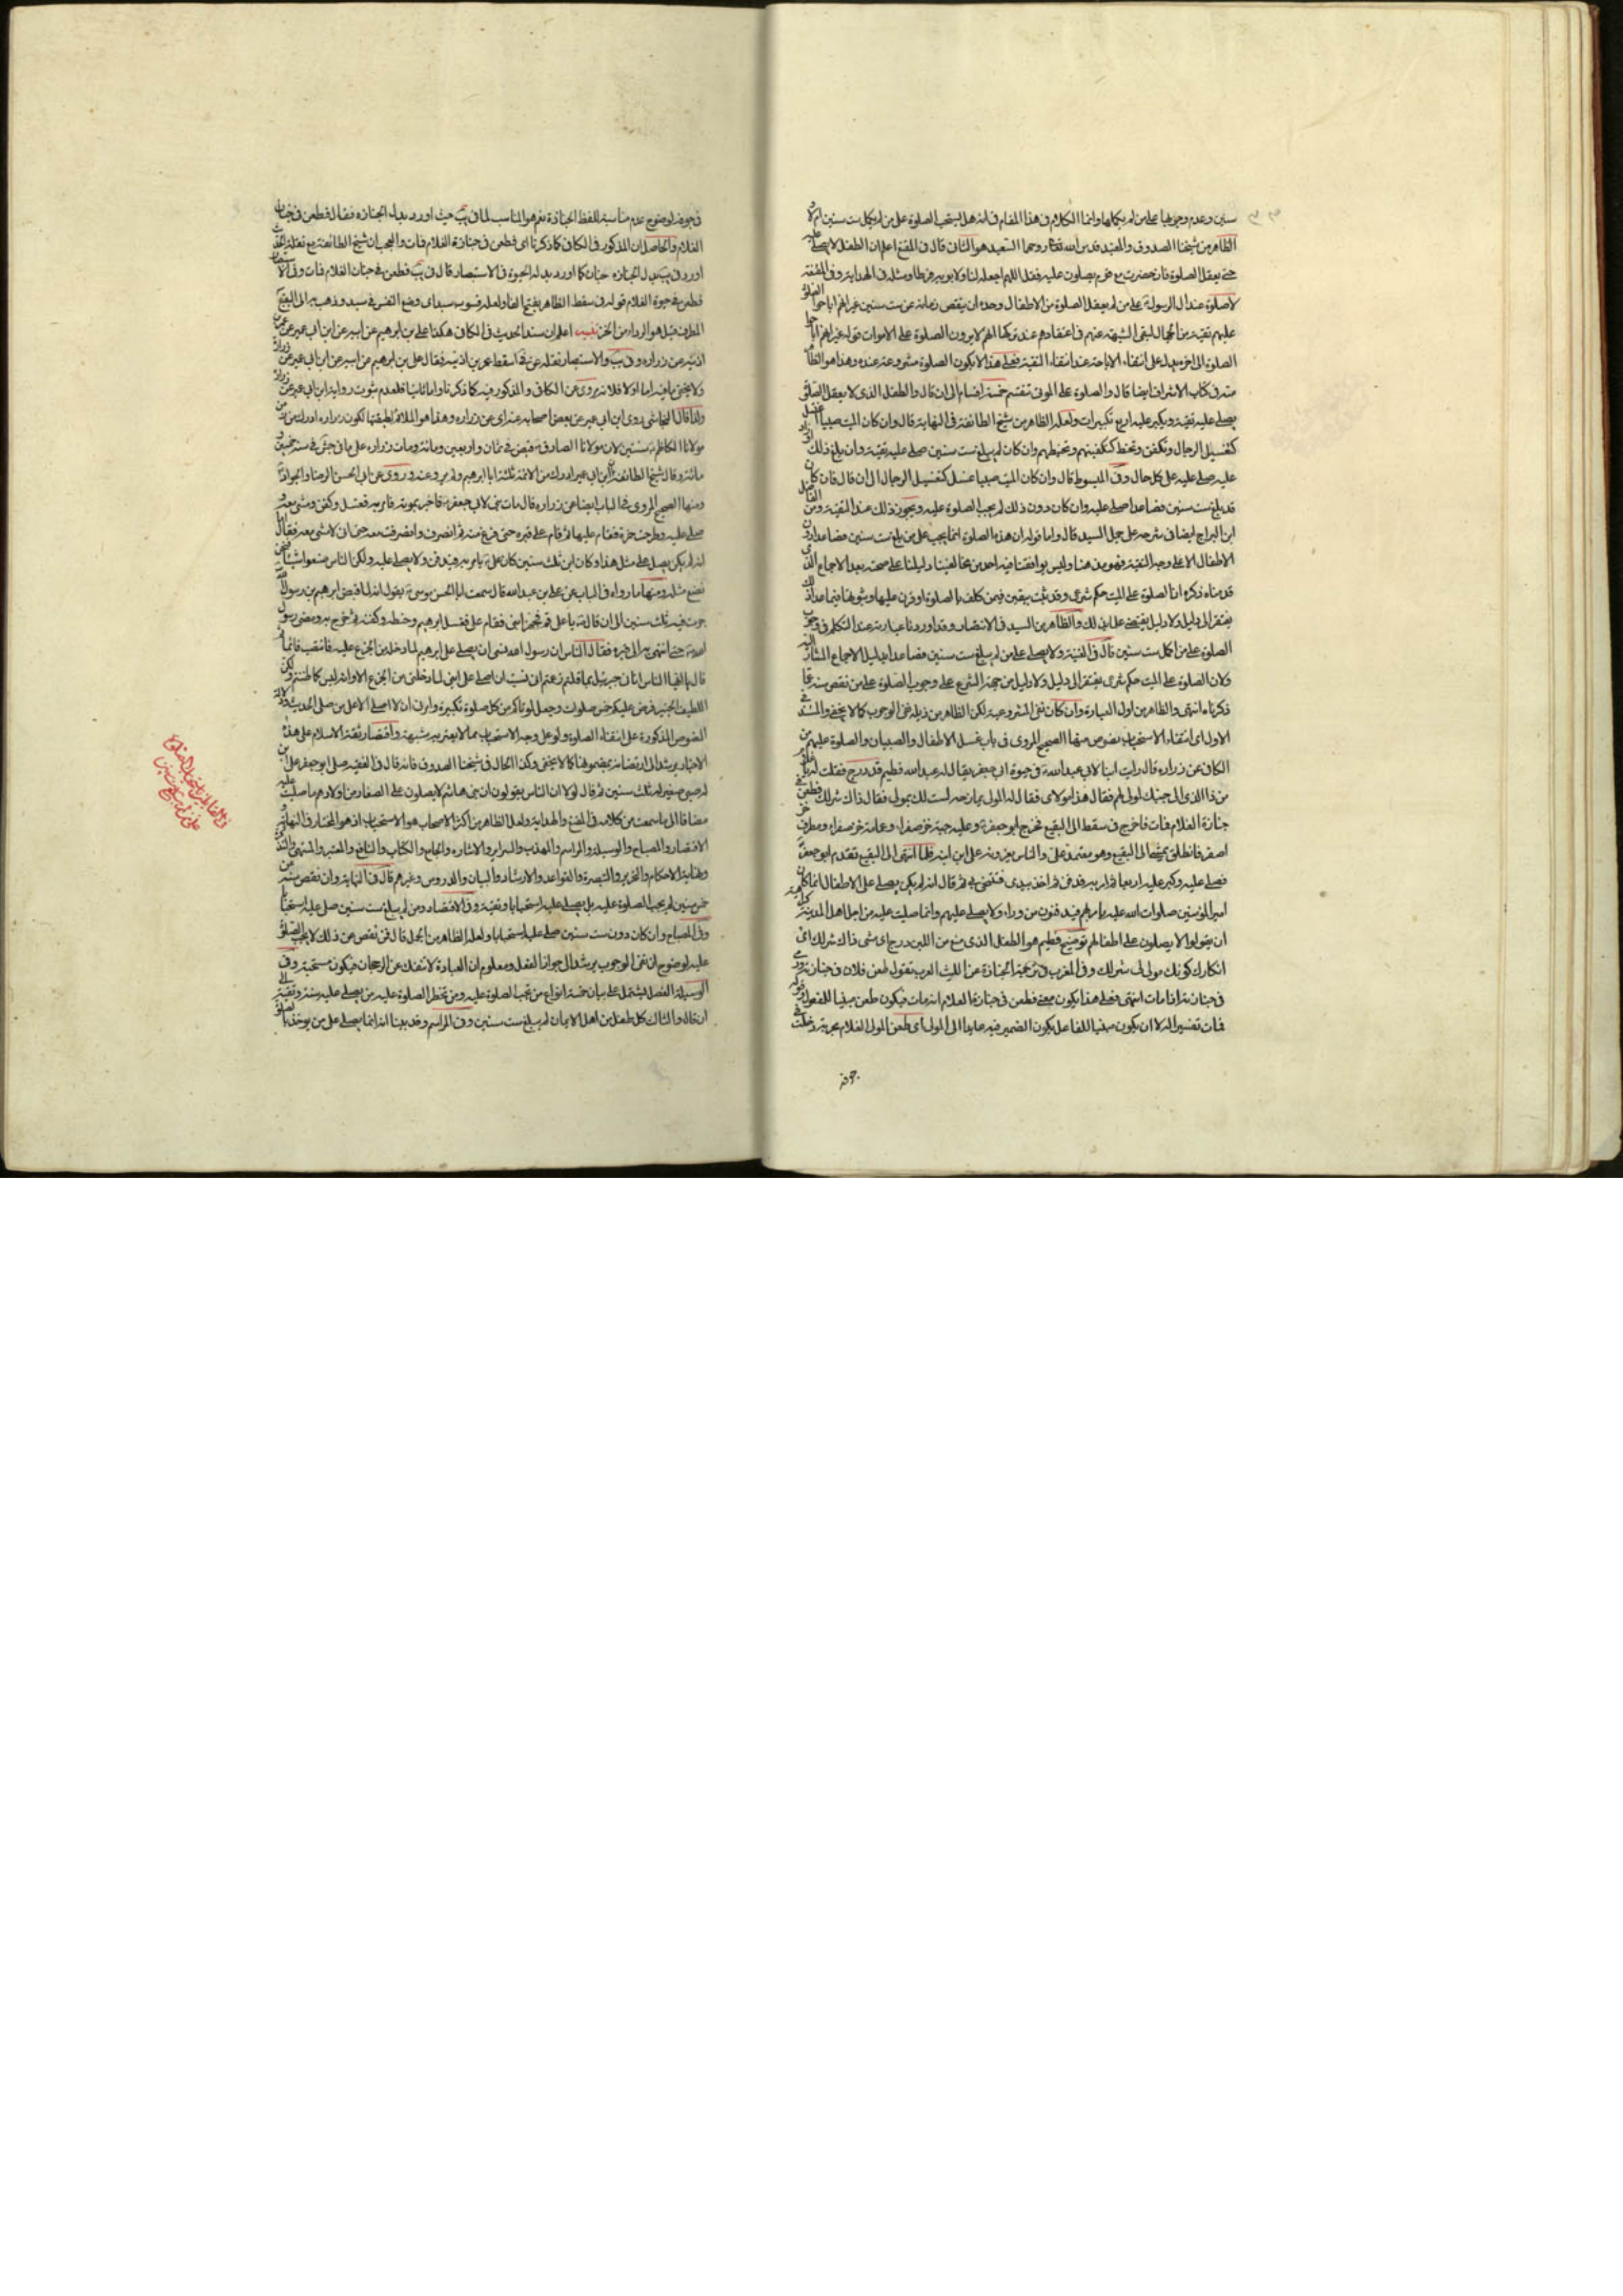 سنين وعدم وجوبها على من لم يكملها وانما الكلام في هذا المقام في انه هل يستحب الصلوة على من لم يكمل ست سنين ام لا
الظاهر من شيخنا الصدوق والمفيد قدس الله تعالى روحهما السعيد هو الثاني قال في المقنع اعلم ان الطفل لا يصلى عليه
حتى يعقل الصلوة فان حضرت مع قوم يصلون عليه فقل اللهم اجعله لنا ولابويه فرطا ومثله في الهداية وفي المقنعة
لا صلوة عند ال الرسول على من لم يعقل الصلوة من الاطفال وحده ان ينقص زمانه عن ست سنين غير انهم اباحوا الصلوة
عليهم تقية من الجهال لنفي الشبهة عنهم في اعتقادهم عند تركها انهم لا يرون الصلوة على الاموات قوله غير انهم اباحوا
الصلوة الى اخره يدل على انتفاء الاباحة عند انتفاء التقية فعلى هذا لا يكون الصلوة مشروعة عنده وهذا هو الظا
منه في كتاب الاشراف ايضا قال والصلوة على الموتى تنقسم خمسة اقسام الى ان قال والطفل الذي لا يعقل الصلوة
يصلى عليه تقية ويكبر عليه اربع تكبيرات ولعله الظاهر من شيخ الطائفة في النهاية قال وان كان الميت صبيا غسل
كتغسيل الرجال وتكفن وتحنط كتكفينهم وتحنيطهم وان كان لم يبلغ ست سنين صلى عليه تقية وان بلغ ذلك
عليه صلى عليه على كل حال وفي المبسوط قال وان كان الميت صبيا غسل كتغسيل الرجال الى ان قال فان كان
قد بلغ ست سنين فصاعدا صلى عليه وان كان دون ذلك لم يجب الصلوة عليه ويجوز ذلك عند التقية ومن
ابن البراج ايضا في شرحه على جمل السيد قال واما قوله ان هذه الصلوة انما يجب على من بلغ ست سنين فصاعدا دون
الاطفال الا على وجه التقية فهو مذهبنا وليس يوافقنا فيه احد من مخالفينا دليلنا على صحته بعد الاجماع الذي
قدمناه ذكره ان الصلوة على الميت حكم شرعي وقد ثبت بيقين فيمن كلف بالصلوة او مرن عليها وثبوتها فيما عدا ذلك
يفتقر الى دليل ولا دليل يقتضي على ذلك والظاهر من السيد في الانتصار وقد اوردنا عبارته عند التكلم في وجوب
الصلوة على من اكمل ست سنين قال في الغنية ولا يصلى على من لم يبلغ ست سنين فصاعدا بدليل الاجماع المشار اليه
ولان الصلوة على الميت حكم شرعي يفتقر الى دليل ولا دليل من جهة الشرع على وجوب الصلوة على من نقص سنه عما
ذكرناه انتهى والظاهر من اول العبارة وان كان نفي المشروعية لكن الظاهر من ذيله نفي الوجوب كما لا يخفى والمستند في
الاول اي انتفاء الاستحباب نصوص منها الصحيح المروي في باب غسل الاطفال والصبيان والصلوة عليهم من
الكافي عن زراره قال رايت ابنا لابي عبد الله في حيوة ابي جعفر يقال له عبد الله فطيم قد درج فقلت له يا غلام
من ذا الذي الى جنبك لمولى لهم فقال هذا مولاي فقال له المولى يمازحه لست لك بمولى فقال ذاك شر لك فطعن في
جنازة الغلام فمات فاخرج في سفط الى البقيع فخرج ابو جعفر وعليه جبة خز صفراء وعمامة خز صفراء ومطرف خز
اصفر فانطلق يمشي الى البقيع وهو معتمد علي والناس يعزونه على ابن ابنه فلما انتهى الى البقيع تقدم ابو جعفر
فصلى عليه وكبر عليه اربعا ثم امر به فدفن ثم اخذ بيدي فتنحى بي ثم قال انه لم يكن يصلى على الاطفال انما كان
امير المؤمنين صلوات الله عليه يامر بهم فيدفنون من وراء ولا يصلى عليهم وانما صليت عليه من اجل اهل المدينة كراهية
ان يقولوا لا يصلون على اطفالهم توضيح فطيم هو الطفل الذي منع من اللبن درج اي مشى ذاك شر لك اي
انكارك كونك مولى لي شر لك وفي المغرب في ترجمة الجنازة عن الليث العرب تقول طعن فلان في جنازته ورمي
في جنازته اذا مات انتهى فعلى هذا يكون معنى فطعن في جنازة الغلام انه مات فيكون طعن مبنيا للمفعول قوله
فمات تفسير اله لا ان يكون مبنيا للفاعل يكون الضمير فيه عايدا الى المولى اي طعن المولى الغلام بحربة دخلت في
جوفه
في جوفه لوضوح عدم مناسبته للفظ الجنازة نعم هو المناسب لما في يب حيث اورد بدل الجنازه فقال فطعن في جنان
الغلام والحاصل ان المذكور في الكافي كما ذكرنا اي فطعن في جنازة الغلام فمات والعجب ان شيخ الطائفة مع نقله الحديث
اورد في يب بدل الجنازه جنان كما اورد بدله الحيوة في الاستبصار قال في يب فطعن في جنان الغلام فمات وفي الاستبصار
فطعن في حيوة الغلام قوله في سفط الظاهر بفتح الفاء ولعله
المطرف قيل هو الرداء من الخز تنبيه اعلم ان سند الحديث في الكافي هكذا علي بن ابرهيم عن ابيه عن ابن ابي عمير عن عمر بن
اذينه عن زراره وفي يب والاستبصار نقله عن في اسقط عمر بن اذينه فقال علي بن ابرهيم عن ابيه عن ابن ابي عمير عن زرارة
ولا يخفى ما فيه اما اولا فلانه يروى عن الكافي والمذكور فيه كما ذكرنا واما ثانيا فلعدم ثبوت رواية ابن ابي عمير عن زراره
ولذا قال النجاشي روى ابن ابي عمير عن بعض اصحابه عنه اي عن زراره وهذا هو الملائم لطبقتها لكون زراره ادرك من
مولانا الكاظم سنتين لان مولانا الصادق قبض في ثمان واربعين ومائة ومات زراره على ما في جش في سنه خمسين و
مائة وقال شيخ الطائفة ان ابن ابي عمير ادرك من الائمة ثلثة ابا ابرهيم ولم يرو عنه وروى عن ابي الحسن الرضا والجواد
ومنها الصحيح المروي في الباب ايضا عن زراره قال مات بني لابي جعفر فاخبر بموته فامر به فغسل وكفن ومشى معه و
صلى عليه وطرحت خمرة فقام عليها ثم قام على قبره حتى فرغ منه ثم انصرف وانصرفت معه حتى اني لامشي معه فقال اما
انه لم يكن يصلى على مثل هذا وكان ابن ثلث سنين كان علي يامر به فيدفن ولا يصلى عليه ولكن الناس صنعوا شيئا فنحن
نصنع مثله ومنها ما رواه في الباب عن علي بن عبد الله قال سمعت ابا الحسن موسى يقول انه لما قبض ابرهيم بن رسول الله
جرت فيه ثلث سنين الى ان قال يا علي قم فجهز ابني فقام علي فغسل ابرهيم وحنطه وكفنه ثم خرج به ومضى رسول
الله حتى انتهى به الى قبره فقال الناس ان رسول الله نسي ان يصلي على ابرهيم لما دخله من الجزع عليه فانتصب قائما ثم
قال يا ايها الناس اتاني جبرئيل بما قلتم زعمتم اني نسيت ان اصلي على ابني لما دخلني من الجزع الا وانه ليس كما ظننتم ولكن
اللطيف الخبير فرض عليكم خمس صلوات وجعل لموتاكم من كل صلوة تكبيرة وامرني ان لا اصلي الا على من صلى الحديث ودلالة
النصوص المذكورة على انتفاء الصلوة ولو على وجه الاستحباب مما لا يعتريه شبهة واقتصار ثقة الاسلام على هذه
الاخبار يرشد الى ارتضائه بمضمونها كما لا يخفى وكذا الحال في شيخنا الصدوق فانه قال في الفقيه صلى ابو جعفر على ابن
له صبي صغير له ثلث سنين ثم قال لولا ان الناس يقولون ان بني هاشم لا يصلون على الصغار من اولادهم ما صليت عليه
مضافا الى ما سمعت من كلامه في المقنع والهداية ولعل الظاهر من اكثر الاصحاب هو الاستحباب اذ هو المختار في النهاية و
الاقتصار والمصباح والوسيلة والمراسم والمهذب والسراير والاشاره والجامع والكتاب والنافع والمعتبر والمنتهى والتذكرة
ونهاية الاحكام والتحرير والتبصرة والقواعد والارشاد والبيان والدروس وغيرهم قال في النهاية وان نقص سنه عن
خمس سنين لم يجب الصلوة عليه بل يصلى عليه استحبابا وتقية وفي الاقتصاد ومن لم يبلغ ست سنين صلى عليه استحبابا
وفي المصباح وان كان دون ست سنين صلى عليه استحبابا ولعله الظاهر من الجمل قال فمن نقص عن ذلك لا يجب الصلوة
عليه لوضوح ان نفي الوجوب يرشد الى جواز الفعل ومعلوم ان العبادة لا تنفك عن الرجحان فيكون مستحبة وفي
الوسيلة الفصل يشتمل على بيان خمسة انواع من تجب الصلوة عليه ومن تحظر الصلوة عليه من يصلى عليه سنة وتقية الى
ان قال والثالث كل طفل من اهل الايمان لم يبلغ ست سنين وفي المراسم وقد بينا انه انما يصلى على من يؤخذ بالصلوة